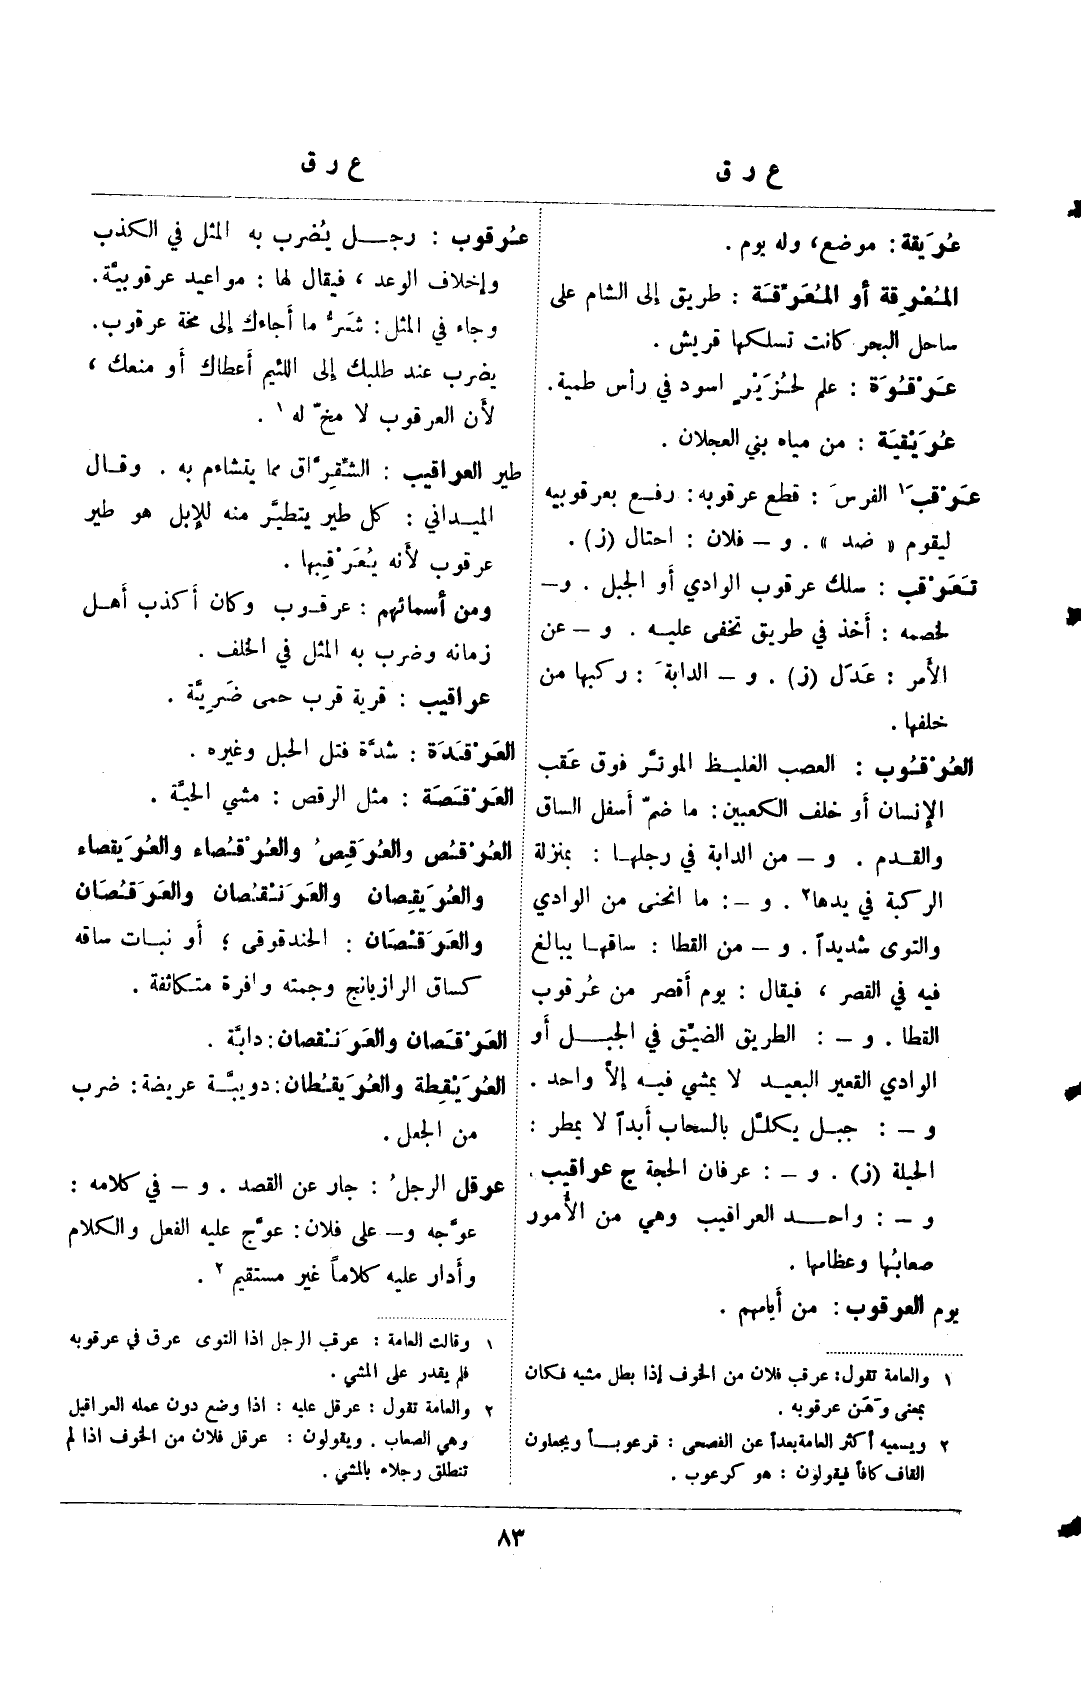 ع ر ق
عُرَيقة: موضع، وله يوم .
المُعْرِقة أو المُعَرْقَة : طريق إلى الشام على
ساحل البحر كانت تسلكها قريش .
عَرْقُوَة : علم لحُزَيْزٍ اسود في رأس طمية.
عُرَيْقيَة : من مياه بني العجلان .
عَرْقبَ١ الفرسَ : قطع عرقوبه: رفع بعرقوبيه
ليقوم « ضد » . و – فلان : احتال (ز) .
تَعَرْقب : سلك عرقوب الوادي أو الجبل . و–
لخصمه : أخذ في طريق تخفى عليه . و – عن
الأمر : عَدَل (ز) . و – الدابةَ : ركبها من
خلفها .
العُرْقُوب : العصب الغليظ الموتَّر فوق عَقب
الإنسان أو خلف الكعبين: ما ضمّ أسفل الساق
والقدم . و – من الدابة في رجلها : بمنزلة
الركبة في يدها٢ . و –: ما انحنى من الوادي
والتوى شديداً . و – من القطا : ساقها يبالغ
فيه في القصر ، فيقال : يوم أقصر من عُرقوب
القطا . و – : الطريق الضيّق في الجبل أو
الوادي القعير البعيد لا يمشي فيه إلاّ واحد .
و – : جبل يكلَّل بالسحاب أبداً لا يمطر :
الحيلة (ز) . و – : عرفان الحجة ج عراقيب .
و – : واحد العراقيب وهي من الأُمور
صعابُها وعظامها .
يوم العرقوب : من أيامهم .
١ والعامة تقول: عرقب فلان من الخوف إذا بطل مشيه فكان
بمعنى وَهَن عرقوبه .
٢ ويسميه أكثر العامة بعداً عن الفصحى : قرعوباً ويجعلون
القاف كافاً فيقولون : هو كرعوب .
ع ر ق
عُرقوب : رجل يُضرب به المثل في الكذب
وإخلاف الوعد ، فيقال لها : مواعيد عرقوبيَّة.
وجاء في المثل: شَرٌّ ما أجاءك إلى مخة عرقوب.
يضرب عند طلبك إلى اللئيم أعطاك أو منعك ،
لأن العرقوب لا مخّ له ١ .
طير العراقيب : الشِّقِرَّاق مما يتشاءم به . وقال
الميداني : كل طير يتطيَّر منه للإبل هو طير
عرقوب لأنه يُعَرْقِبها .
ومن أسمائهم : عرقوب وكان أكذب أهل
زمانه وضرب به المثل في الخلف .
عراقيب : قرية قرب حمى ضَرِيَّة .
العَرْقَدَة : شدَّة فتل الحبل وغيره .
العَرْقَصَة : مثل الرقص : مشي الحيَّة .
العُرْقُص والعُرَقِصُ والعُرْقُصاء والعُرَيقصاء
والعُرَيقِصان والعَرَنْقُصان والعَرَقُصَان
والعَرَقْصَان : الحندقوقى ؛ أو نبات ساقه
كساق الرازيانج وجمته وافرة متكاثفة .
العَرْقَصان والعَرَنْقصان: دابَّة .
العُرَيْقِطة والعُرَيقُطان: دويبَّة عريضة: ضرب
من الجعل .
عرقل الرجلُ : جار عن القصد . و – في كلامه :
عوَّجه و– على فلان: عوَّج عليه الفعل والكلام
وأدار عليه كلاماً غير مستقيم ٢ .
١ وقالت العامة : عرقب الرجل اذا التوى عرق في عرقوبه
فلم يقدر على المشي .
٢ والعامة تقول : عرقل عليه : اذا وضع دون عمله العراقيل
وهي الصعاب . ويقولون : عرقل فلان من الخوف اذا لم
تنطلق رجلاه بالمشي .
٨٣